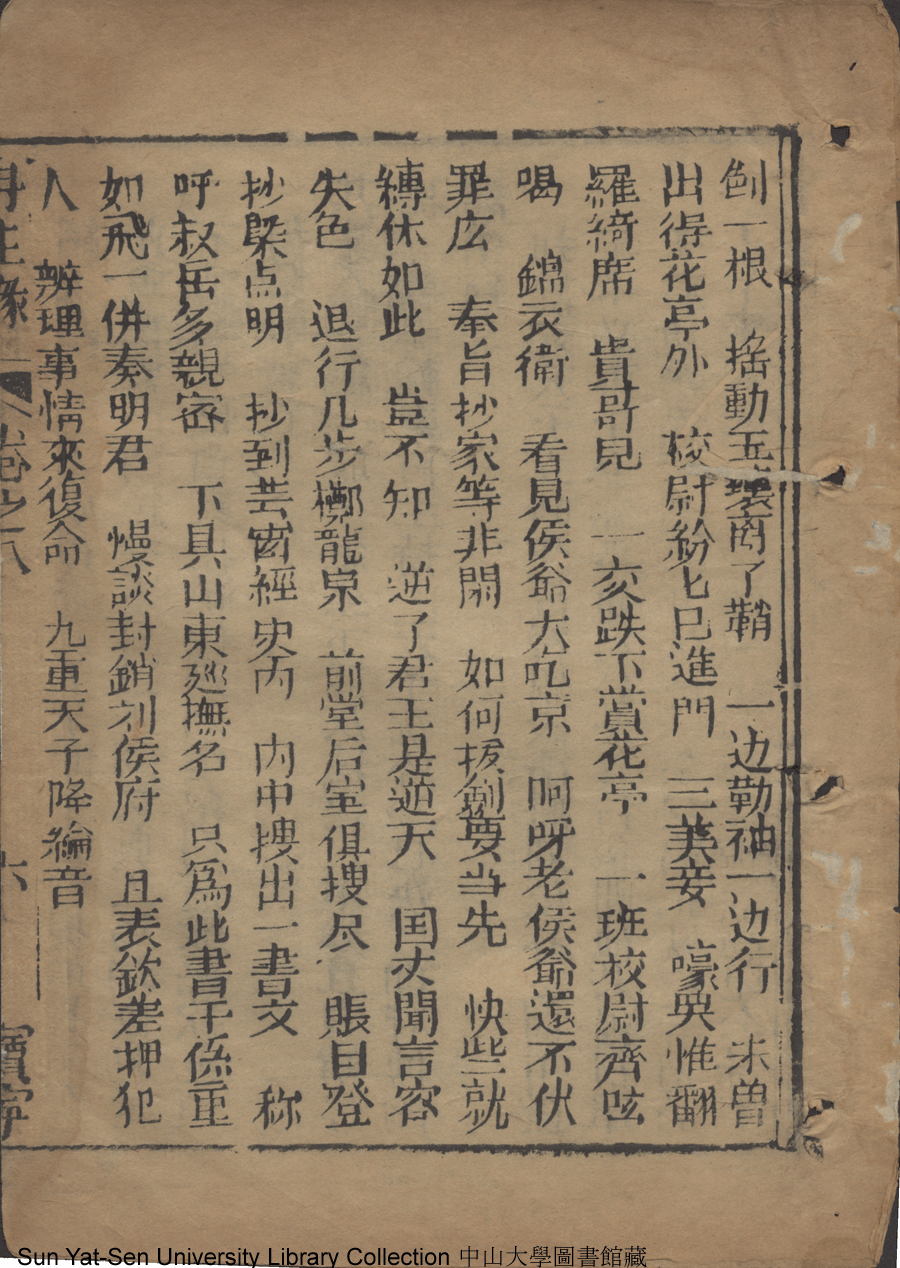 劍一根 搖動玉環響了鞘 一边勒袖一边行 未曽
出得花亭外 校尉紛匕已進門 三美妾 嚎哭惟翻
羅綺席 貴哥見 一交跌下賞花亭 一班校尉齊吆
喝 錦衣衛 看見侯爺大吃京 呵呀老侯爺還不伏
罪庅 奉旨抄家等非閑 如何拔劍要当先 快些就
縛休如此 豈不知 逆了君王是逆天 囯丈聞言容
失色 退行几步擲龍泉 前堂后室俱搜尽 賬目登
抄槩点明 抄到芸窗經史内 内中搜出一書文 称
呼叔岳多親密 下具山東廵撫名 只爲此書干係重
如飛一併奏明君 慢談封銷刘侯府 且表欽差押犯
人 辨理事情來復命 九重天子降綸音
再生緣 卷之八 六 寶寧
Sun Yat-Sen University Library Collection 中山大學圖書館藏